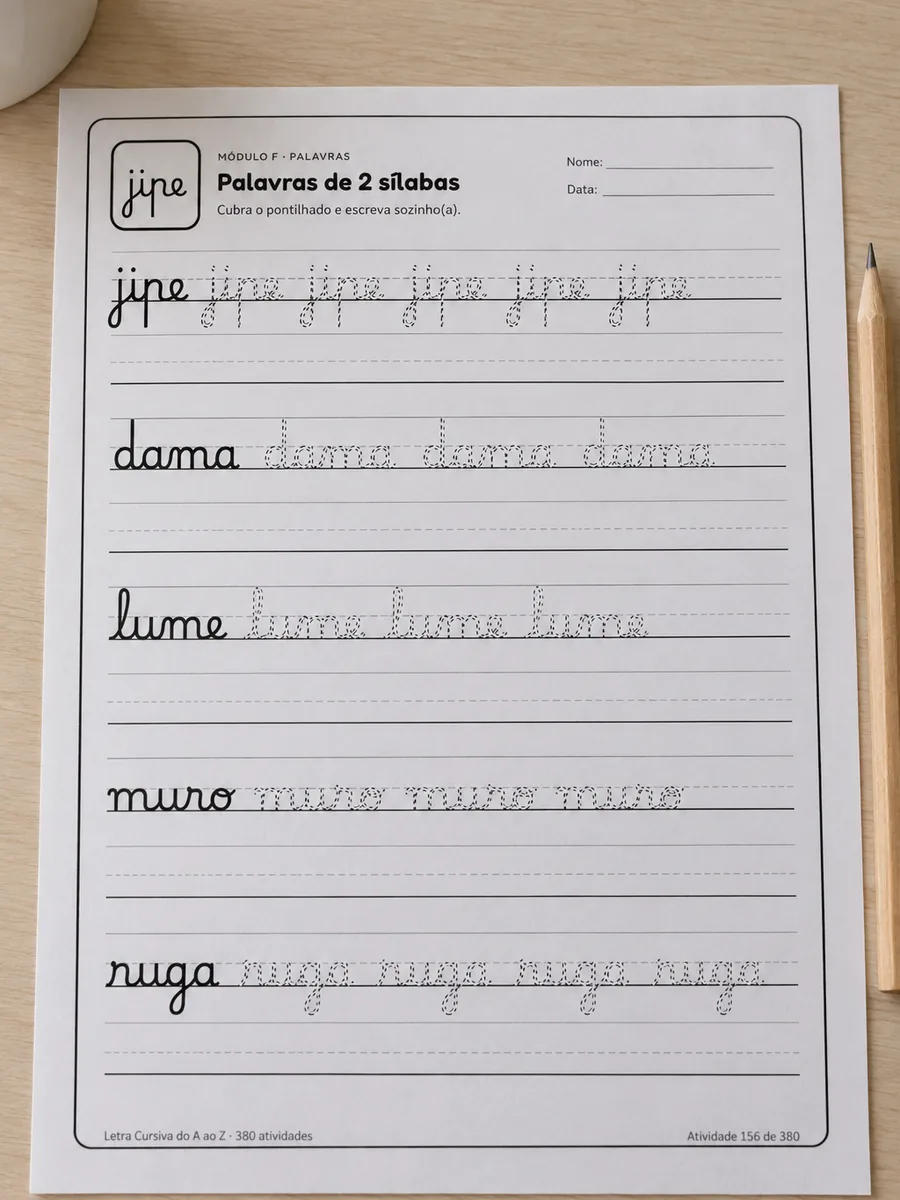 jipe
MÓDULO F · PALAVRAS
Palavras de 2 sílabas
Cubra o pontilhado e escreva sozinho(a).
Nome:
Data:
jipe jipe jipe jipe jipe jipe
dama dama dama dama
lume lume lume lume
muro muro muro muro
ruga ruga ruga ruga ruga
Letra Cursiva do A ao Z · 380 atividades
Atividade 156 de 380